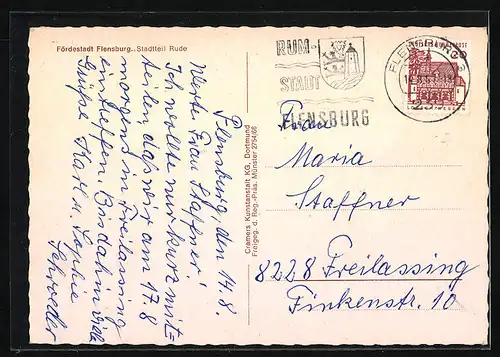 Fördestadt Flensburg.. Stadtteil Rude
Flensburg, den 14.8.
Werte Frau Staffner!
Ich wollte nur kurz mit=
teilen das wir am 17.8
morgens in Freilassing
eintreffen. Bis dahin viele
Grüße Karl u. Sophie
Schroeder
Cramers Kunstanstalt KG, Dortmund
Freigeg. d. Reg.-Präs. Münster 2754/66
RUM-
STADT
FLENSBURG
FLENSBURG
Frau
Maria
Staffner
8228 Freilassing
Finkenstr. 10